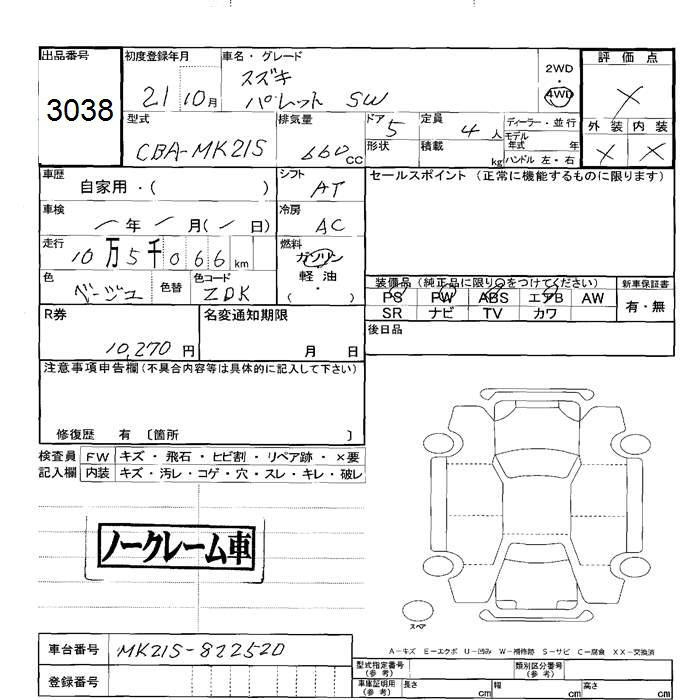 出品番号 初度登録年月 車名・グレード 評価点
3038 21 10月 スズキ パレット SW 2WD ・ 4WD ×
型式 排気量 ドア 定員 ディーラー・並行 外装 内装
CBA-MK21S 660cc 5 4人 モデル年式 年 × ×
形状 積載 kg ハンドル 左・右
車歴 シフト セールスポイント (正常に機能するものに限ります)
自家用・( ) AT
車検 冷房
年 月( 日) AC
走行 燃料
10万5千066km ガソリン
色 色替 色コード 軽油
ベージュ ZDK ・ ( )
装備品 (純正品に限り○をつけてください) 新車保証書
PS PW ABS エアB AW 有・無
SR ナビ TV カワ
R券 名変通知期限 後日品
10,270円 月 日
注意事項申告欄(不具合内容等は具体的に記入して下さい)
修復歴 有 〔箇所 〕
検査員 FW キズ・飛石・ヒビ割・リペア跡・×要
記入欄 内装 キズ・汚レ・コゲ・穴・スレ・キレ・破レ
ノークレーム車
スペア
A-キズ E-エクボ U-凹み W-補修跡 S-サビ C-腐食 XX-交換済
車台番号 MK21S-822520
登録番号
型式指定番号(参考) 類別区分番号(参考)
車庫証明用(参考) 長さ cm 幅 cm 高さ cm